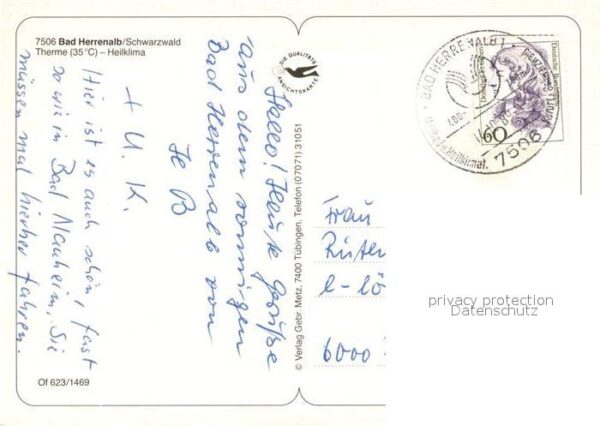 7506 Bad Herrenalb/Schwarzwald
Therme (35°C) – Heilklima
DIE QUALITÄTS
ANSICHTSKARTE
Hallo! Herzl. Grüße
aus dem sonnigen
Bad Herrenalb von
+ U. K.
Hier ist es auch schön, fast
so wie in Bad Nauheim, Sie
müssen mal hierher fahren.
Of 623/1469
© Verlag Gebr. Metz, 7400 Tübingen, Telefon (07071) 31051
BAD HERRENALB 1
Heilklimat.
7506
Deutsche Bundespost
60
Frau
6000
privacy protection
Datenschutz